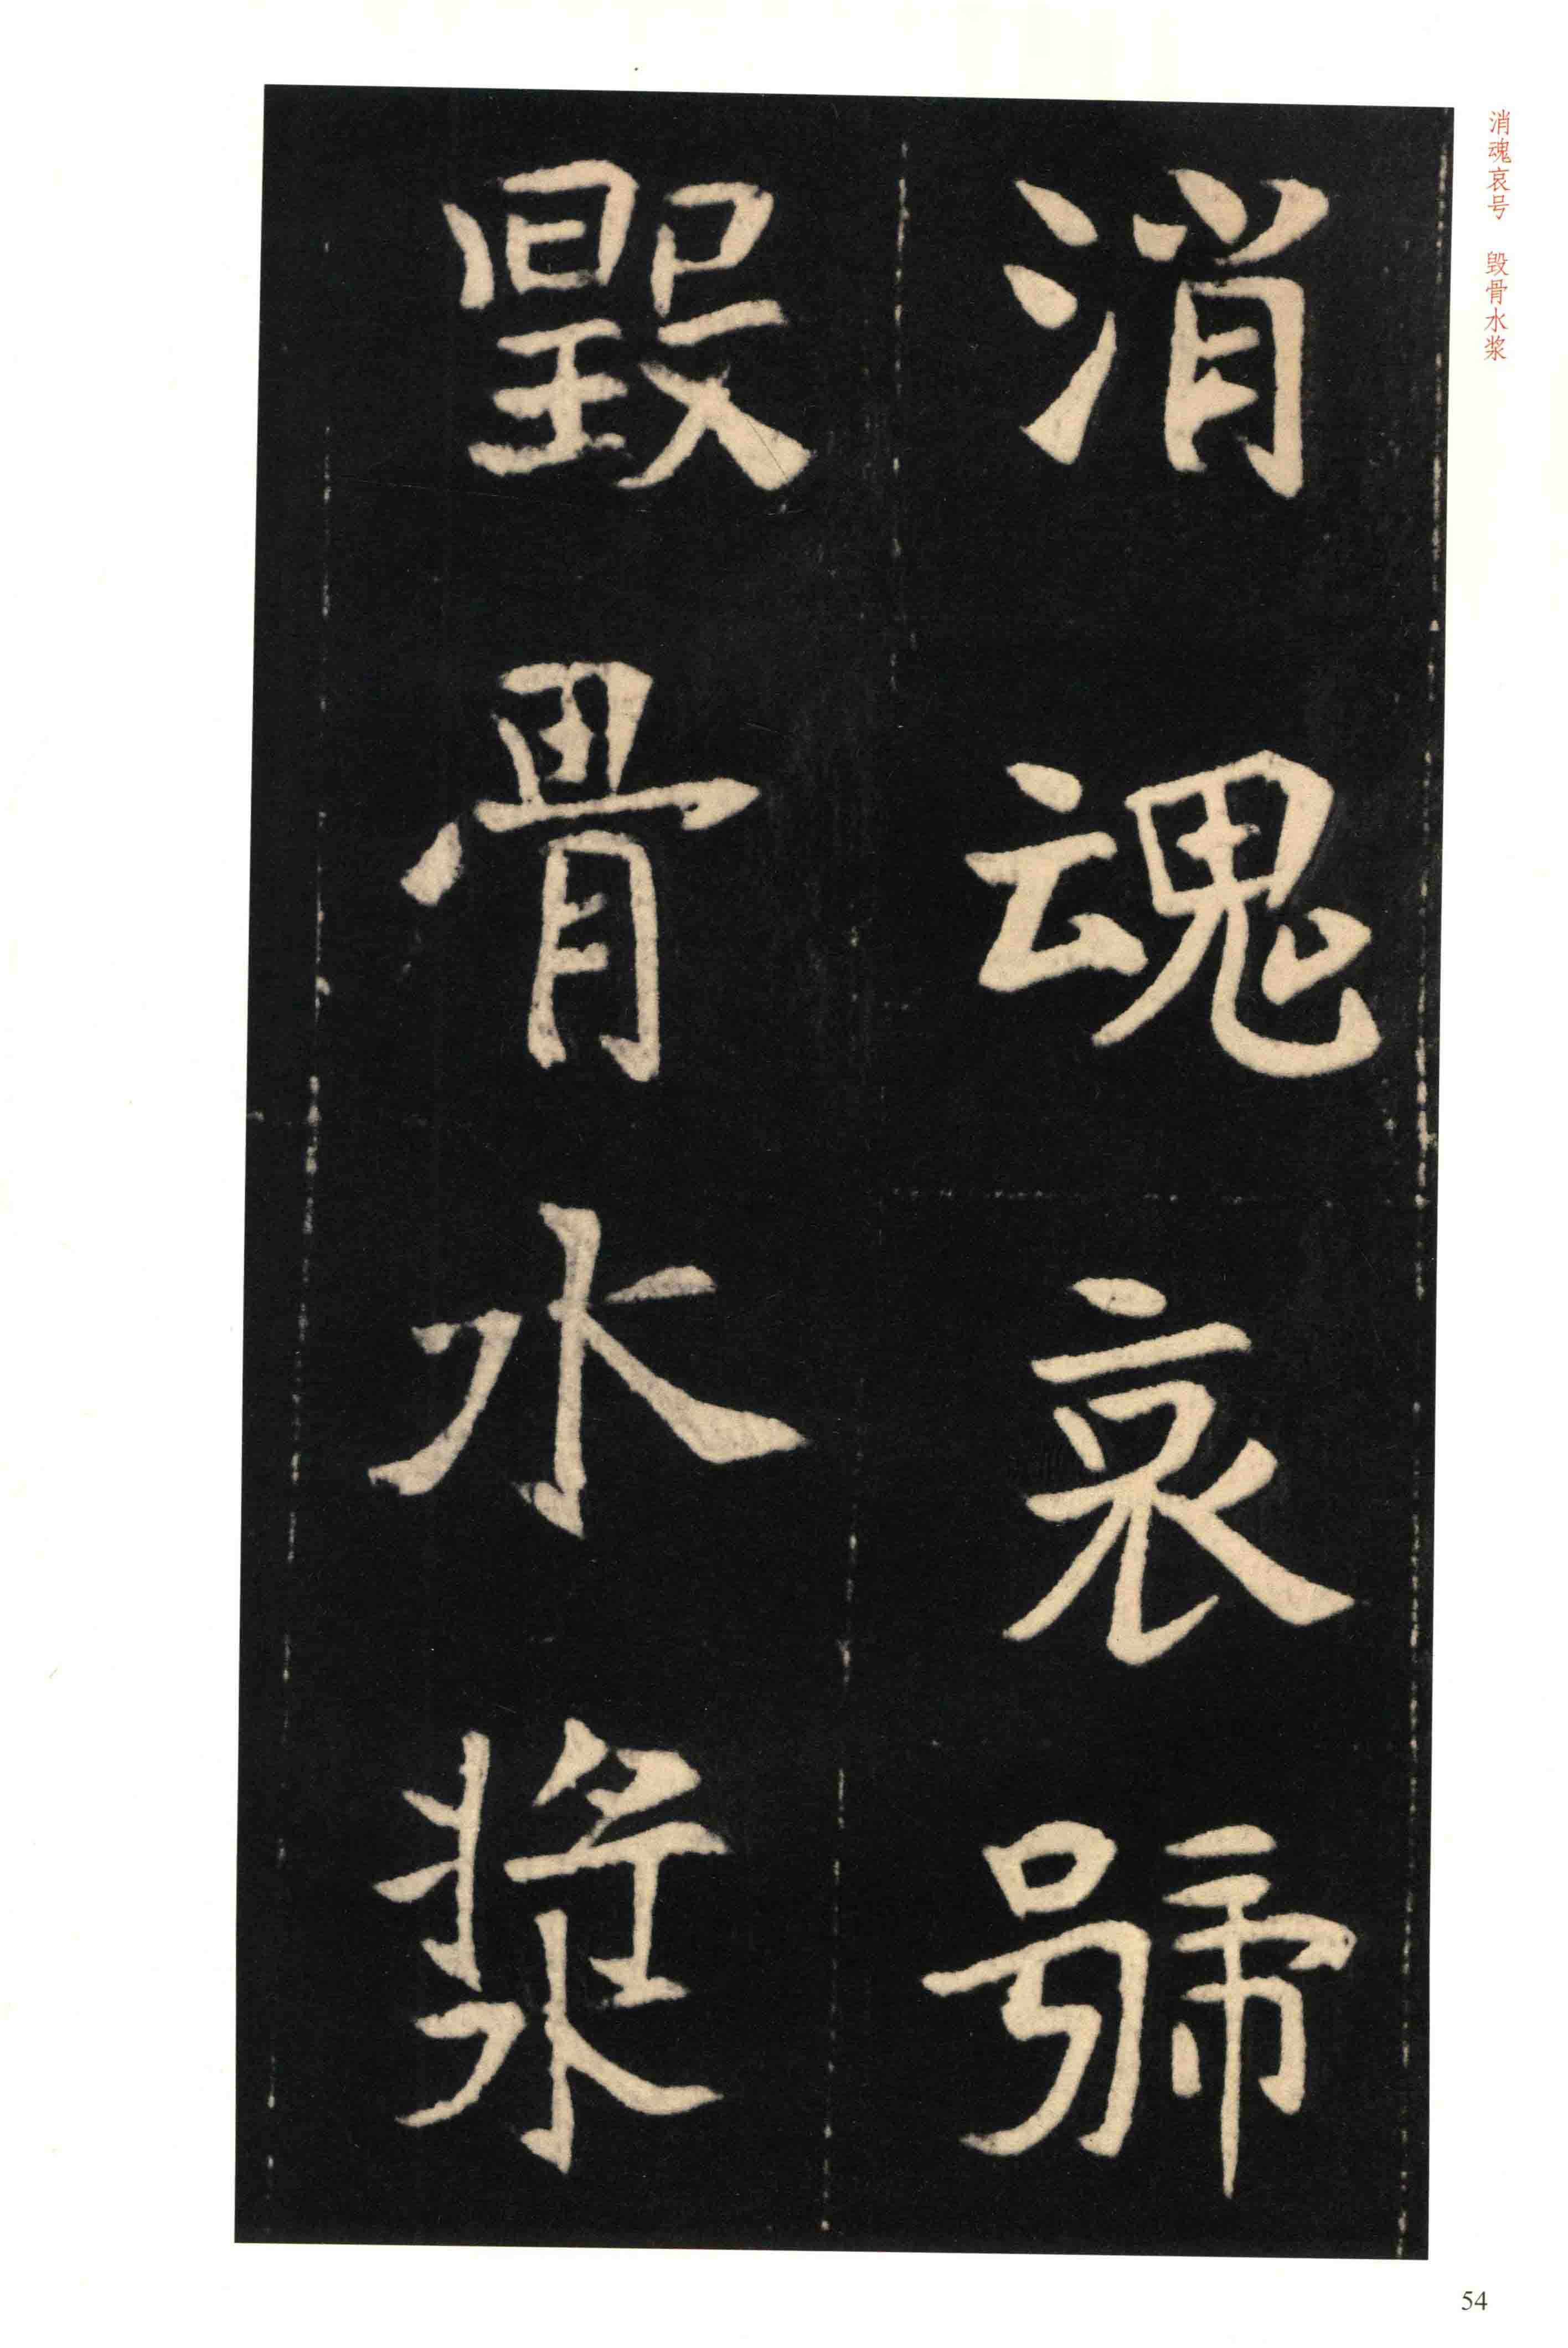 消魂哀号　毁骨水浆
消魂哀號
毀骨水漿
54